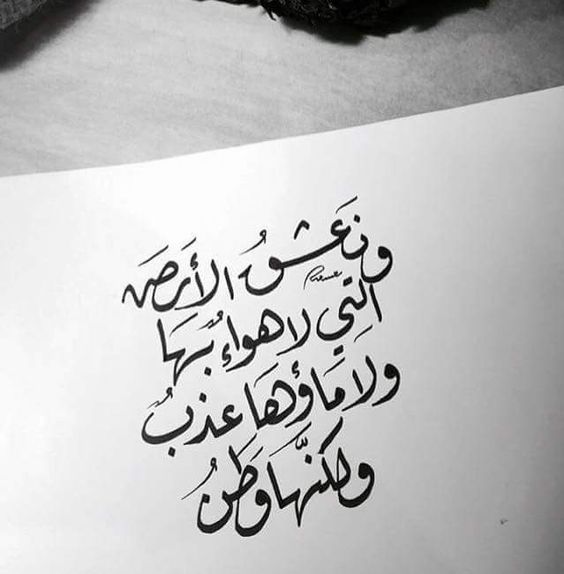 ونَعشقُ الأرضَ
التِي لا هواءٌ بهَا
ولا مَاؤهَا عذبٌ
ولكنَّهَا وَطنُ